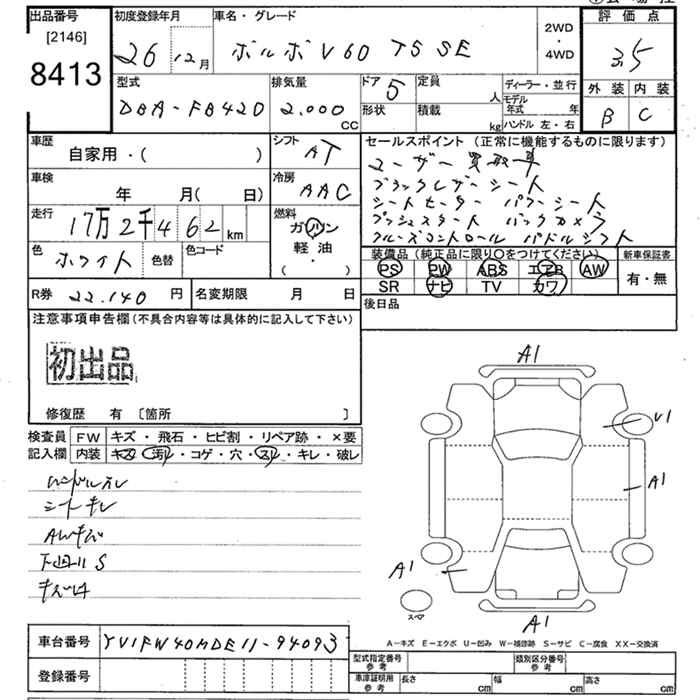 出品番号
[2146]
8413
初度登録年月
26 12月
車名・グレード
ボルボ V60 T5 SE
2WD
・
4WD
評価点
3.5
外装 内装
B C
型式
DBA-FB420
排気量
2.000
CC
ドア
5
形状
定員
人
積載
kg
ディーラー・並行
モデル
年式 年
ハンドル 左・右
車歴
自家用・( )
シフト
AT
車検
年 月( 日)
冷房
AAC
走行
17万2千462
km
燃料
ガソリン
軽油
( ・ )
色
ホワイト
色替
色コード
R券 22.140 円
名変期限 月 日
セールスポイント (正常に機能するものに限ります)
ユーザー買取車
ブラックレザーシート
シートヒーター パワーシート
プッシュスタート バックカメラ
クルーズコントロール パドルシフト
装備品 (純正品に限り○をつけてください)
PS PW ABS エアB AW
SR ナビ TV カワ
新車保証書
有・無
後日品
注意事項申告欄 (不具合内容等は具体的に記入して下さい)
初出品
修復歴 有 〔箇所 〕
検査員
記入欄
FW キズ・飛石・ヒビ割・リペア跡・×要
内装 キズ・汚れ・コゲ・穴・スレ・キレ・破レ
ハンドルスレ
シートキレ
AWキズ
下回りS
A1
V1
A1
A1
A1
スペア
A－キズ E－エクボ U－凹み W－補修跡 S－サビ C－腐食 XX－交換済
車台番号
YV1FW40MDE11-94093
登録番号
型式指定番号
参考
類別区分番号
参考
車庫証明用
参考
長さ cm
幅 cm
高さ cm